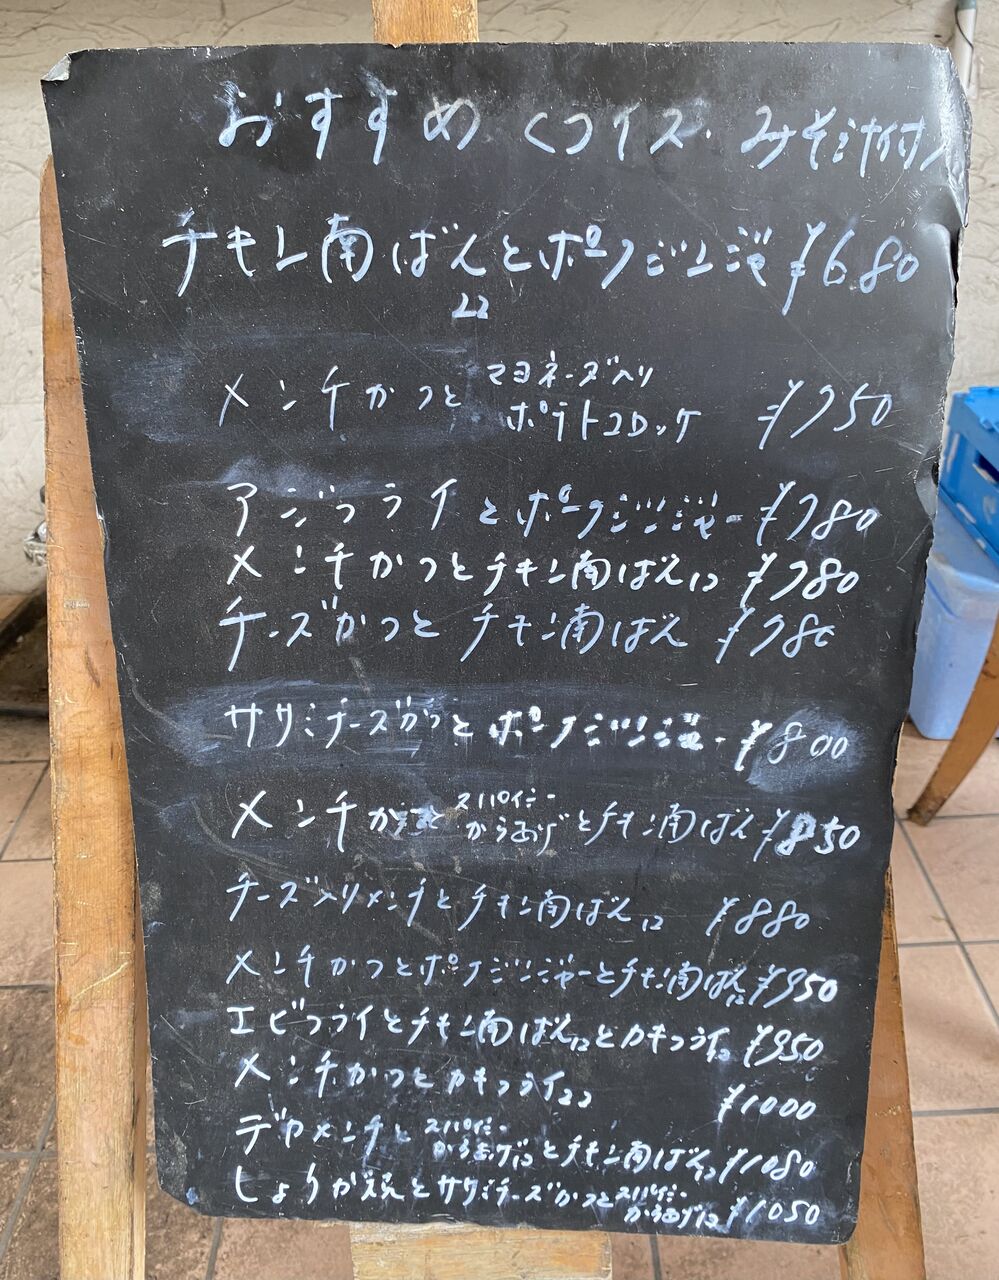 おすすめ (ライス・みそ汁付)
チキン南ばんとポークジンジャ ¥680
22
メンチかつとマヨネーズ入り ¥750
ポテトコロッケ
アジフライとポークジンジャー ¥780
メンチかつとチキン南ばん12 ¥780
チーズかつとチキン南ばん ¥780
ササミチーズかつとポークジンジャー ¥800
メンチかつとスパイシーからあげとチキン南ばん ¥850
チーズ入りメンチとチキン南ばん12 ¥880
メンチかつとポークジンジャーとチキン南ばん12 ¥950
エビフライとチキン南ばん12とカキフライ2 ¥950
メンチかつとカキフライ22 ¥1000
デカメンチとスパイシーからあげ12とチキン南ばん12 ¥1080
しょうが焼とササミチーズかつとスパイシーからあげ12 ¥1050